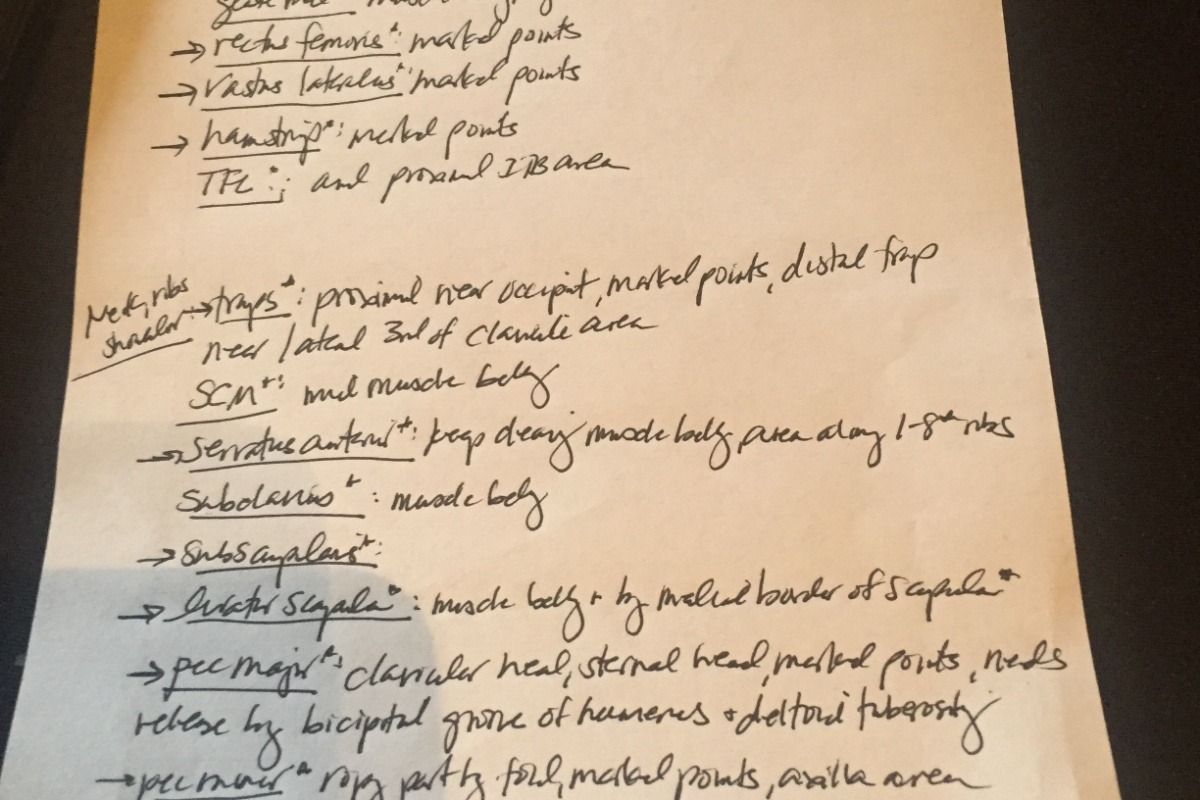 → rectus femoris*: marked points
→ vastus lateralus*: marked points
→ hamstrip*: marked points
TFL*: and proximal ITB area
Neck, ribs
shoulder → traps*: proximal near occiput, marked points, distal trap
near lateral 3rd of clavicle area
SCM*: mid muscle belly
→ serratus anterior*: keep clearing muscle belly, area along 1-8th ribs
Subclavius*: muscle belly
→ Subscapularis*:
→ levator scapula*: muscle belly + by medial border of scapular*
→ pec major*: clavicular head, sternal head, marked points, needs
release by bicipital groove of humerus + deltoid tuberosity
→ pec minor* ropy part by fold, marked points, axilla area